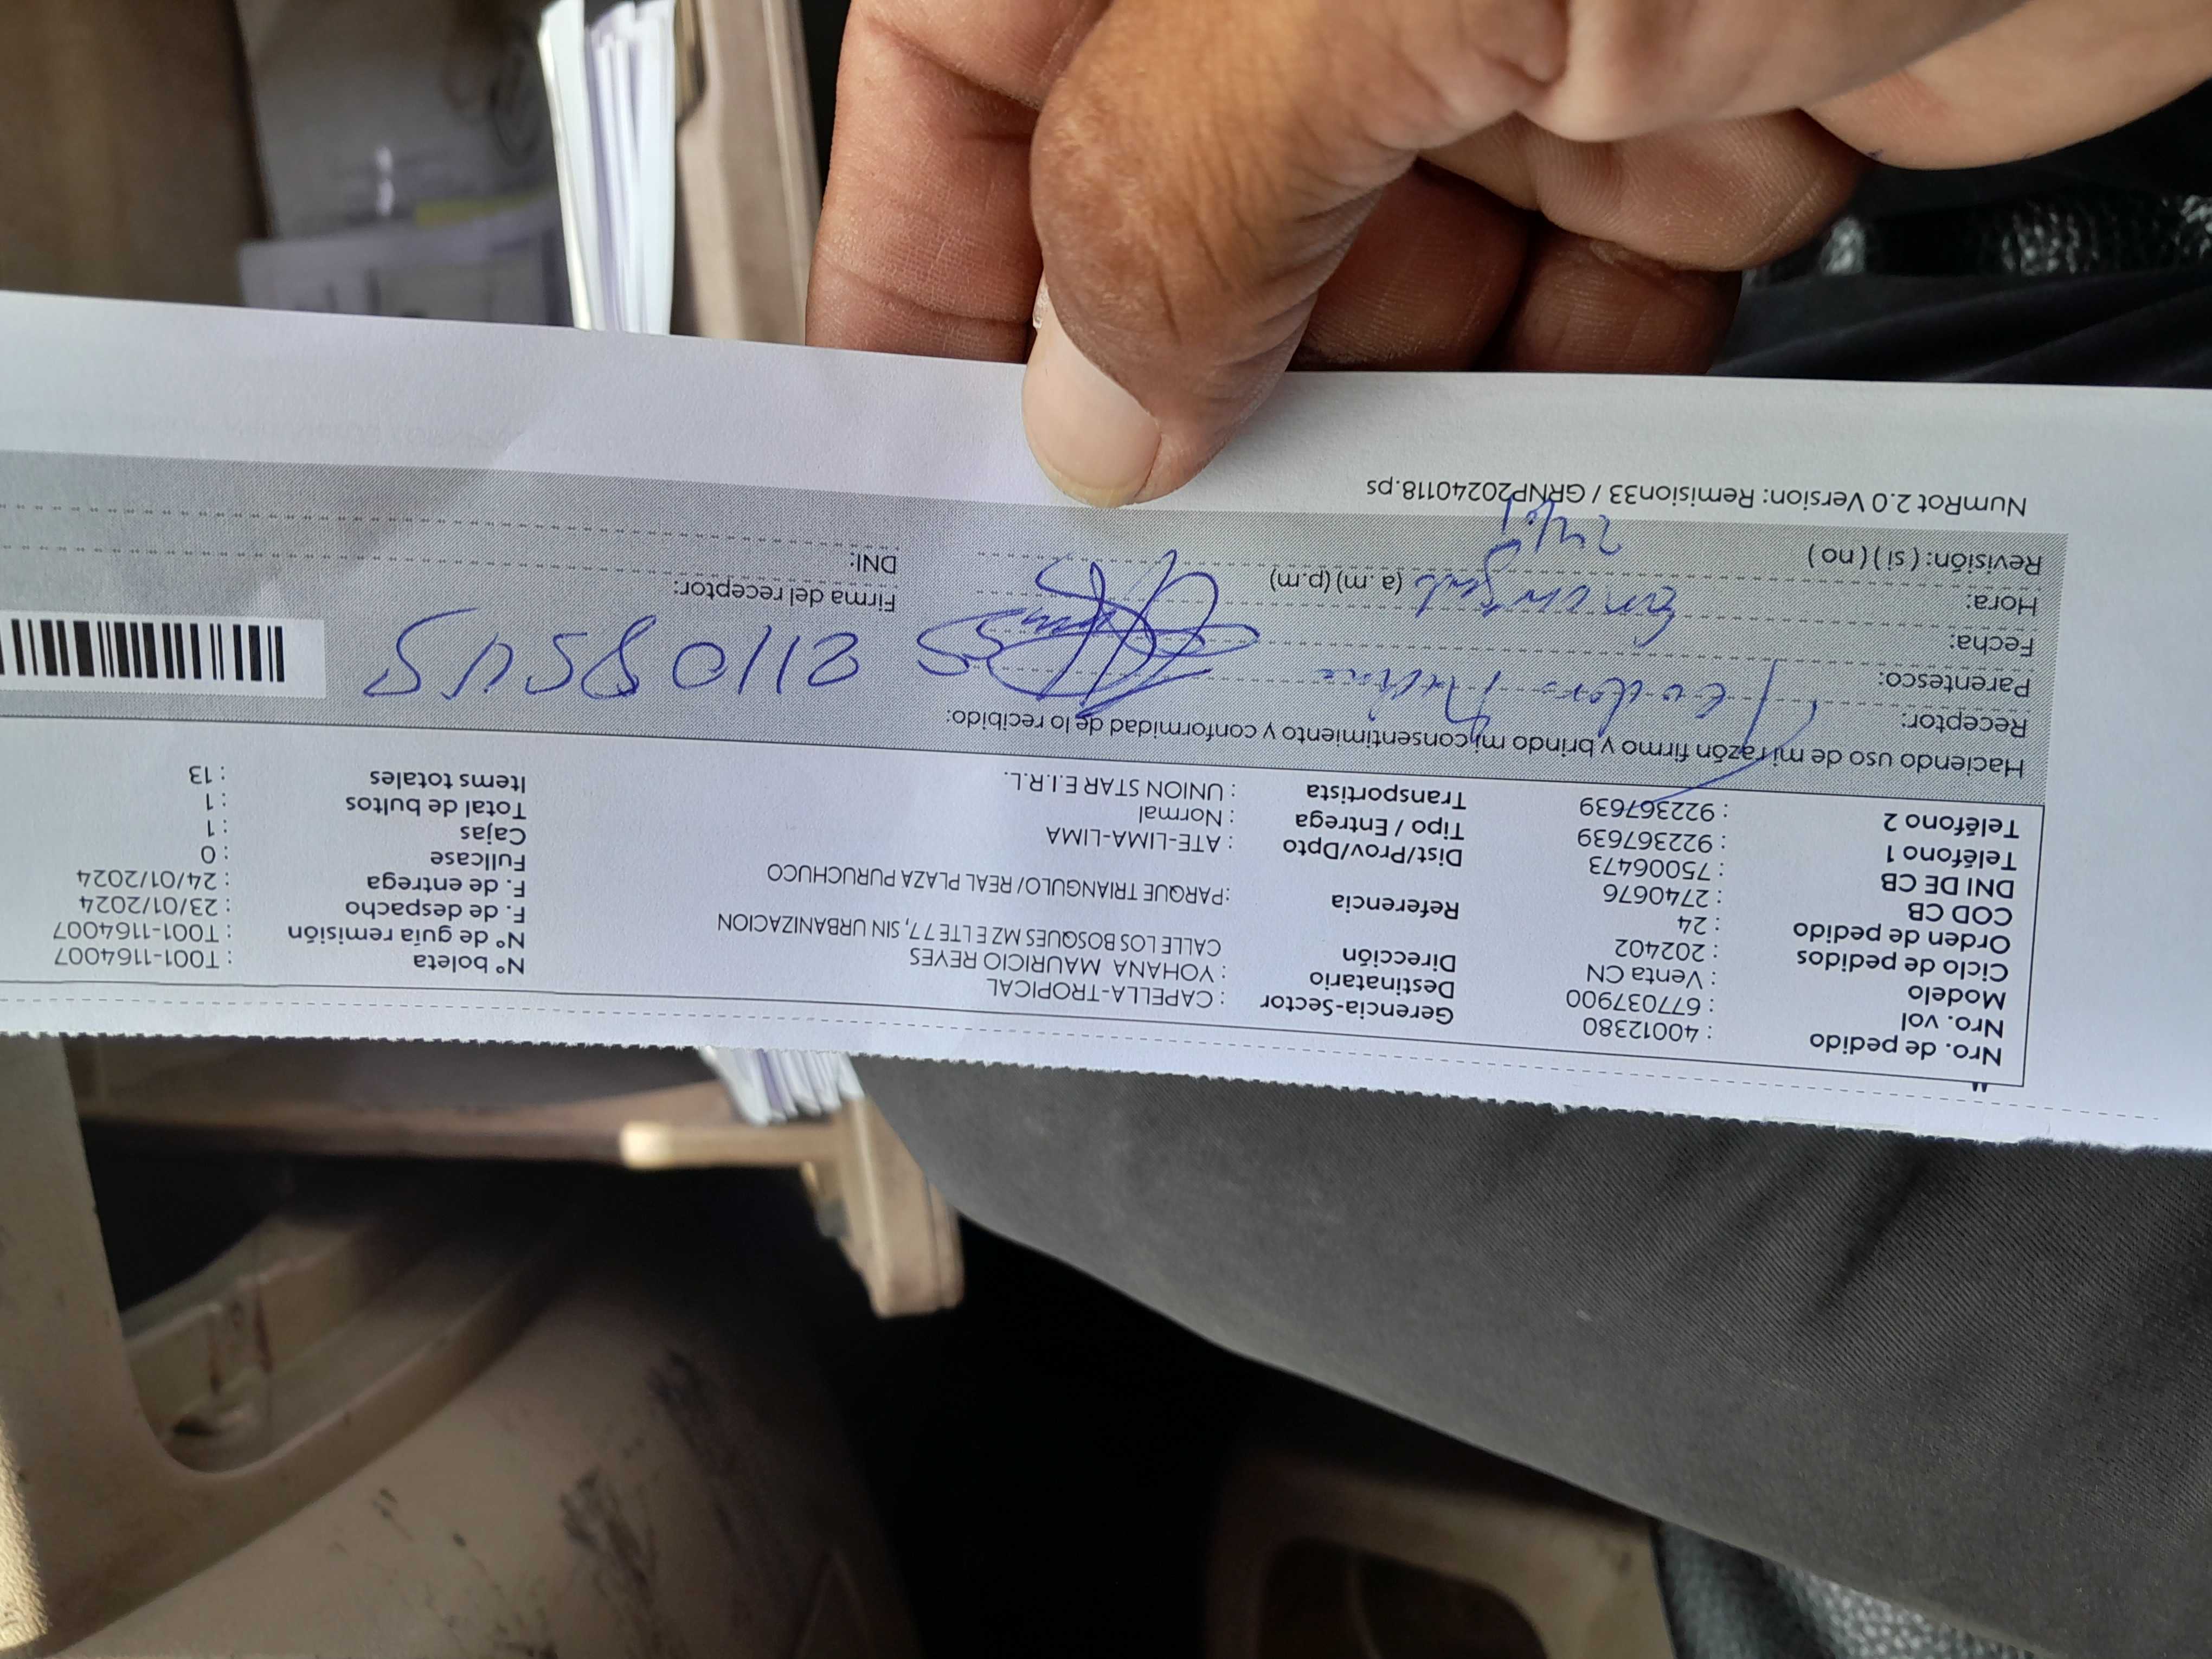 Nro. de pedido : 40012380 Gerencia-Sector : CAPELLA-TROPICAL Nº boleta : T001-1164007
Nro. vol : 677037900 Destinatario : YOHANA MAURICIO REYES Nº de guía remisión : T001-1164007
Modelo : Venta CN Dirección CALLE LOS BOSQUES MZ E LTE 77, SIN URBANIZACION F. de despacho : 23/01/2024
Ciclo de pedidos : 202402 F. de entrega : 24/01/2024
Orden de pedido : 24 Referencia :PARQUE TRIANGULO/ REAL PLAZA PURUCHUCO Fullcase : 0
COD CB : 2740676 Cajas : 1
DNI DE CB : 75006473 Dist/Prov/Dpto : ATE-LIMA-LIMA Total de bultos : 1
Teléfono 1 : 922367639 Tipo / Entrega : Normal Items totales : 13
Teléfono 2 : 922367639 Transportista : UNION STAR E.I.R.L.
Haciendo uso de mi razón firmo y brindo mi consentimiento y conformidad de lo recibido:
Receptor: Teodoro
Parentesco:
Fecha:
Hora: (a.m) (p.m) Firma del receptor:
Revisión: ( si ) ( no ) 24/01 DNI:
NumRot 2.0 Version: Remision33 / GRNP20240118.ps